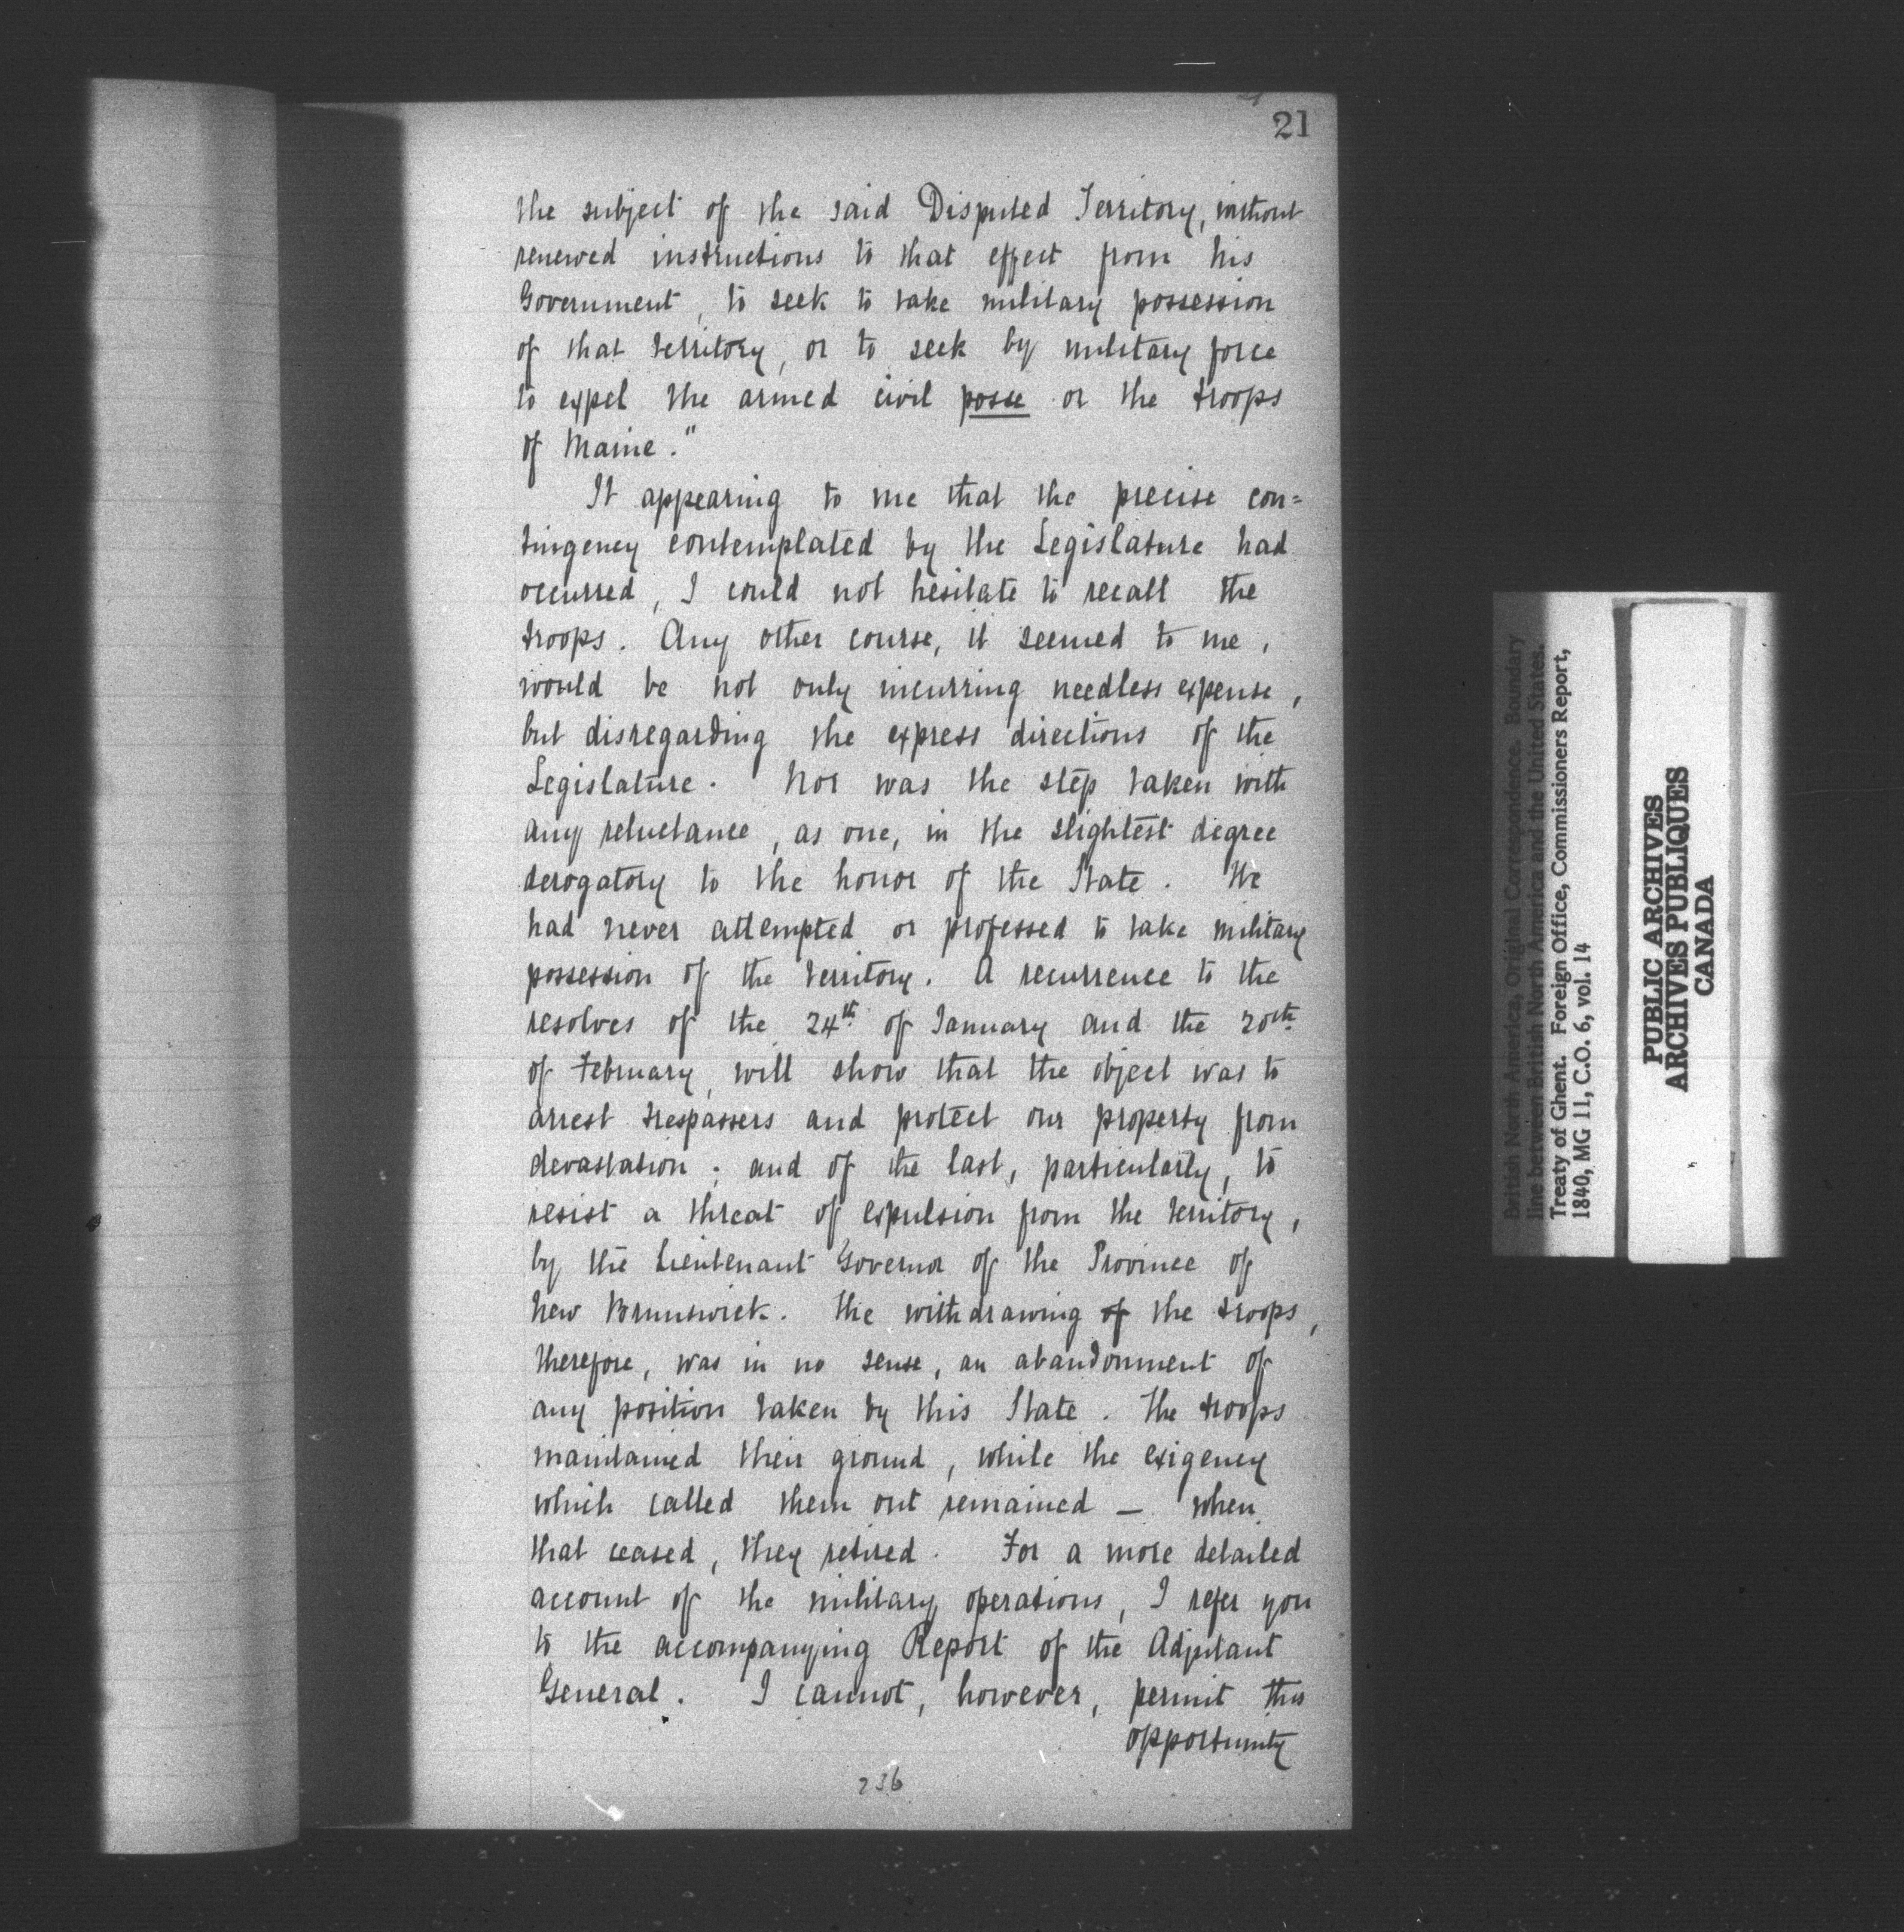 21
the subject of the said Disputed Territory, without
renewed instructions to that effect from his
Government, to seek to take military possession
of that territory, or to seek by military force
to expel the armed civil posse or the troops
of Maine."
It appearing to me that the precise con=
tingency contemplated by the Legislature had
occurred, I could not hesitate to recall the
troops. Any other course, it seemed to me,
would be not only incurring needless expense,
but disregarding the express directions of the
Legislature. Nor was the step taken with
any reluctance, as one, in the slightest degree
derogatory to the honor of the State. We
had never attempted or professed to take military
possession of the territory. A recurrence to the
resolves of the 24th of January and the 20th
of February, will show that the object was to
arrest trespassers and protect our property from
devastation; and of the last, particularly, to
resist a threat of expulsion from the territory,
by the Lieutenant Governor of the Province of
New Brunswick. The withdrawing of the troops,
therefore, was in no sense, an abandonment of
any position taken by this State. The troops
maintained their ground, while the exigency
which called them out remained — when
that ceased, they retired. For a more detailed
account of the military operations, I refer you
to the accompanying Report of the Adjutant
General. I cannot, however, permit this
opportunity
236
British North America, Original Correspondence. Boundary
line between British North America and the United States.
Treaty of Ghent. Foreign Office, Commissioners Report,
1840, MG 11, C.O. 6, vol. 14
PUBLIC ARCHIVES
ARCHIVES PUBLIQUES
CANADA